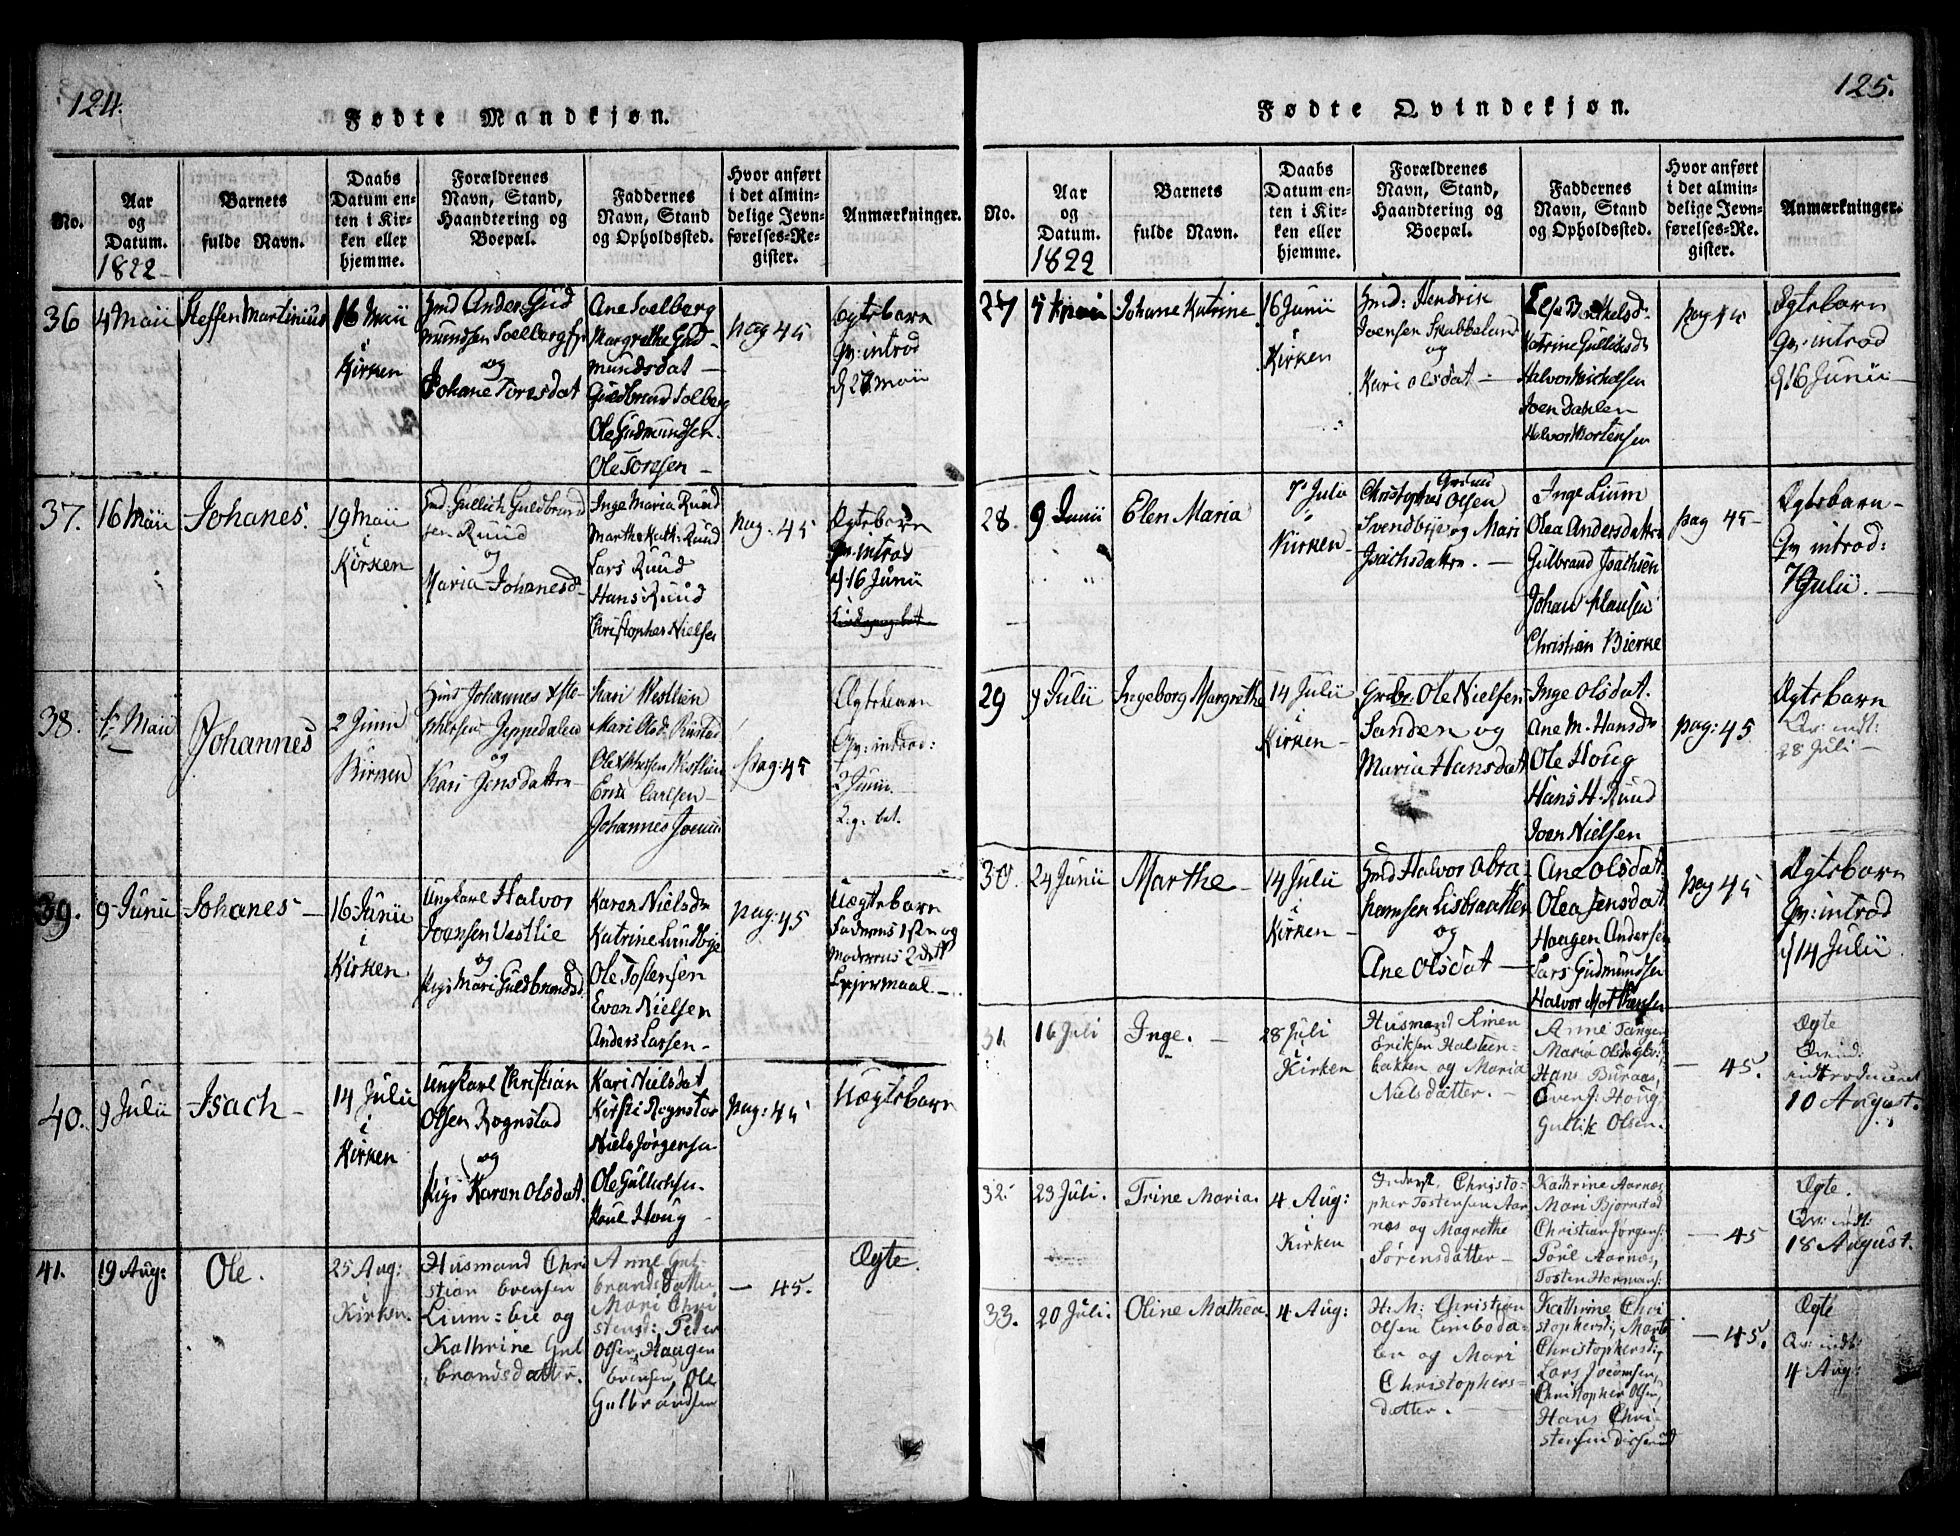 124.
Fødte Mandkjøn.
No.
Aar
og
Datum.
1822
Barnets
fulde Navn.
Daabs
Datum en-
ten i Kir-
ken eller
hjemme.
Forældrenes
Navn, Stand,
Haandtering og
Boepæl.
Faddernes
Navn, Stand
og Opholdssted.
Hvor anført
i det almin-
delige Jevn-
førelses-Re-
gister.
Anmærkninger.
36
4 Maii
Steffen Martinius
16 Maii
i
Kirken
Hmd Anders Gud
mundsen Soelberg
og
Johane Toresdat
Ane Soelberg
Margrethe Gud-
mundsdat —
Guldbrand Solberg
Ole Gudmundsen.
Ole Toresen —
pag 45
Ægtebarn
Qv: introd
d 27 Maii
37.
16 Maii
Johanes.
19 Maii
i
Kirken
Hmd. Gullich Guldbrand
sen Ruud
og
Maria Johanesd
Inge Maria Ruud
Marthe Kath: Ruud
Lars Ruud
Hans Ruud
Christopher Nielsen
pag: 45
Ægtebarn
Qv: introd
d: 16 Junii
38.
Maii
Johannes
2 Junii
Kirken
Johannes
Jeppedalen
og
Kari Jensdatter
Kari Westlien
Mari Olsd. Rustad
Westlien
Erik Carlsen —
Johannes
pag: 45
Ægtebarn
Qv: introd:
2 Junii
39.
9 Junii
Johanes —
16 Junii
i
Kirken
Ungkarl Halvor
Joensen Vestlie
og
Pige Mari Guldbrandsd.
Karen Nielsdr
Katrine Lundbye
Ole Tostensen
Even Nielsen
Anders Larsen —
pag: 45
Uægtebarn
Faderens 1ste og
Moderens 2det
Leyermaal —
40.
9 Julii
Isach —
14 Julii
i
Kirken
Ungkarl Christian
Olsen Rognstad
og
Pige Karen Olsdat.
Kari Nielsdat
Kirsti Rognstad
Niels Jørgensen
Ole Gullichsen
Poul Houg —
pag: 45
Uægtebarn
41.
19 Aug:
Ole.
25 Aug:
Kirken.
Husmand Chri
stian Evensen
Lium: eie og
Kathrine Gul
brandsdatter.
Anne Gul-
brandsdatter
Mari Chri
stensd: Peder
Olsen, Haagen
Evensen, Ole
Gulbrandsen
— 45.
Ægte.
125.
Fødte Qvindekjøn.
No.
Aar
og
Datum.
1822
Barnets
fulde Navn.
Daabs
Datum en-
ten i Kir-
ken eller
hjemme.
Forældrenes
Navn, Stand,
Haandtering og
Boepæl.
Faddernes
Navn, Stand
og Opholdssted.
Hvor anført
i det almin-
delige Jevn-
førelses-Re-
gister.
Anmærkninger.
27
5
Johane Katrine
16 Junii
i
Kirken
Hmd: Hendrik
Joensen Skabbeland
og
Kari Olsdat —
Katrine Gulliksdr
Halvor Michelsen
Joen Dahlen
Halvor Mortensen
pag 45
Ægtebarn
Qv: introd
d 16 Junii —
28.
9 Junii
Elen Maria
7 Julii
i
Kirken —
Christopher Olsen
Svendbye og Mari
Isachsdatter. —
Inge Lium
Olea Andersdatter
Gulbrand Isachsen
Johan Klausen
Christian Bierke
pag 45 —
Ægtebarn —
Qv introd:
7 Julii. —
29
7 Julii
Ingeborg Margrethe
14 Julii
i
Kirken —
Grbr. Ole Nielsen
Sanden og
Maria Hansdat
Inge Olsdat.
Ane M. Hansdr
Ole Houg
Hans H. Ruud
Joen Nielsen
pag: 45
Ægtebarn
Qv: indt:
28 Juli —
30.
24 Junii
Marthe —
14 Julii
i
Kirken —
Hmd Halvor Abra
hamsen Lisbraatten
og
Ane Olsdat —
Ane Olsdat.
Olea Jensdat
Haagen Andersen
Lars Gudmundsen
Halvor Mathesen
pag 45
Ægtebarn
Qv: introd
d 14 Julii
31.
16 Juli
Inge. —
28 Juli
i
Kirken
Husmand Simen
Eriksen Halsteen-
bakken og Maria
Nielsdatter —
Anne Tangen
Maria Olsdatter
Hans Buraas,
Evens: Houg
Gullik Olsen.
— 45.
Ægte
Qvind:
introduceret
10 August.
32.
23 Juli.
Trine Maria.
4 Aug:
i
Kirken
Inderst, Christo-
pher Tostensen Aar
næs og Magrethe
Sørensdatter —
Kathrine Aarnæs,
Mari Bjørnstad
Christian Jørgens:
Toril Aarnæs,
Tosten Hermans:
— 45
Ægte.
Qv: indt:
18 August.
33.
20 Juli.
Oline Mathea.
4 Aug:
H. M: Christian
Olsen Limboda-
len og Mari
Christophers-
datter. —
Kathrine Chri
stophersd; Marte
Christophersd;
Lars Jocumsen,
Christopher Olsen,
Hans Chri-
stensen
— 45.
Ægte
Qv: indt:
4 Aug: